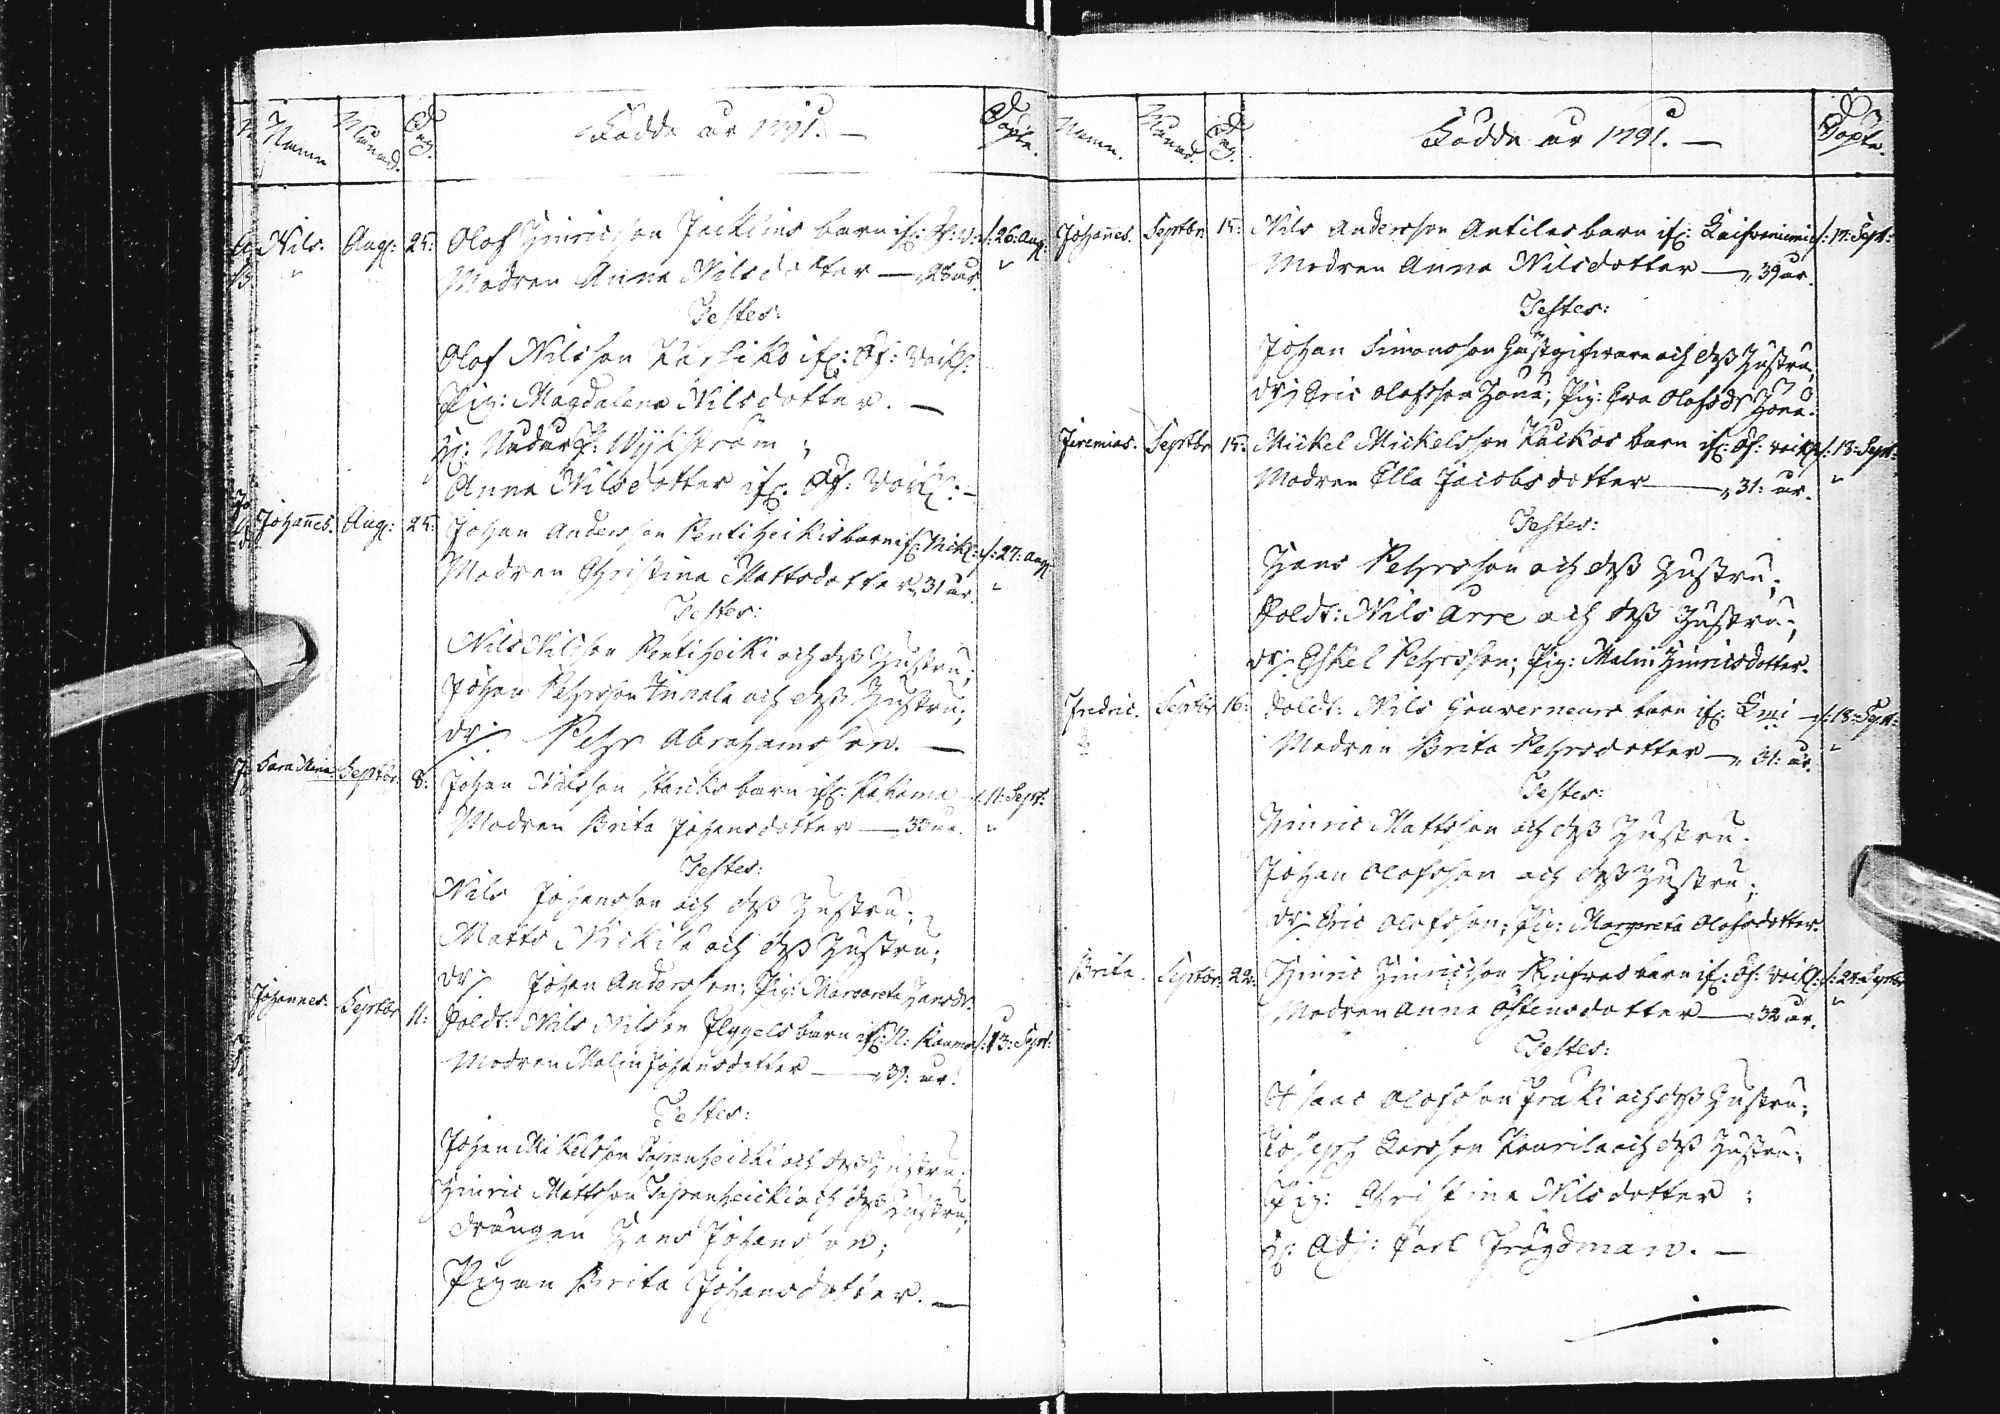 Namn Månad. Dag. Födde år 1791. — Döpte.
Nils. Aug: 25: Olof Hinricsson Jacklins barn if: Öf: V: d: 26: Aug:
Modren Anna Nilsdotter — 28 år.
Testes:
Olof Nilsson Karsiko if: Öf: Voick:
Pig: Magdalena Nilsdotter. —
H: Wykström;
Anna Nilsdotter if: Öf: Voick: —
Johannes. Aug: 25: Johan Andersson Pentiheikis barn if: Nick: d: 27: Aug:
Modren Christina Mattsdotter 31 år.
Testes:
Nils Nilsson Pentiheiki och dess Hustru;
Johan Pehrsson Junnala och dess Hustru;
Dr: Pehr Abrahamsson. —
Sara Maria Septbr: 8: Johan Nilsson barn if: Kakama d: 11: Sept:
Modren Brita Johansdotter — 33 år.
Testes:
Nils Johansson och dess Hustru;
Matts Nickila och dess Hustru;
Dr: Johan Andersson; Pig: Margareta Hansdr.
Johannes. Septbr 11: Soldt: Nils Nilsson Flygels barn if: N: Raumo d: 13: Sept:
Modren Malin Johansdotter — 39: år.
Testes:
Johan Mickelsson och dess Hustru;
Hinric Mattsson och dess Hustru;
Drängen Hans Johansson;
Pigan Brita Johansdotter. —
Namn. Månad. Dag. Födde år 1791. — Döpte.
Johannes. Septbr. 15: Nils Andersson Antilas barn if: Laivaniemi d: 17: Sept:
Modren Anna Nilsdotter — 39 år.
Testes:
Johan Simonsson Gästgifvare och dess Hustru;
Dr: Eric Olofsson; Pig: Eva Olofsdr
Jeremias. Septbr 15: Mickel Mickelsson Kuckos barn if: Öf: Voick: d: 18: Sept:
Modren Ella Jacobsdotter — 31: år.
Testes:
Hans Pehrsson och dess Hustru;
Soldt: Nils Arre och dess Hustru;
Dr: Eskel Pehrsson; Pig: Malin Hinricsdotter.
Fredric. Septbr 16: Soldt: Nils Gouverneurs barn if: d: 18: Sept:
Modren Brita Pehrsdotter — 31: år.
Testes:
Hinric Mattsson och dess Hustru.
Johan Olofsson och dess Hustru;
Dr: Eric Olofsson; Pig: Margreta Olofsdotter.
Brita. Septbr: 22: Hinric Hinricsson barn if: Öf: Voick: d: 24: Septbr
Modren Anna Östensdotter — 32 år.
Testes:
Isaac Olofsson Fraki och dess Hustru;
Joseph Larsson Kourila och dess Hustru;
Pig: Christina Nilsdotter;
H: Adj: Carl Frögdman. —